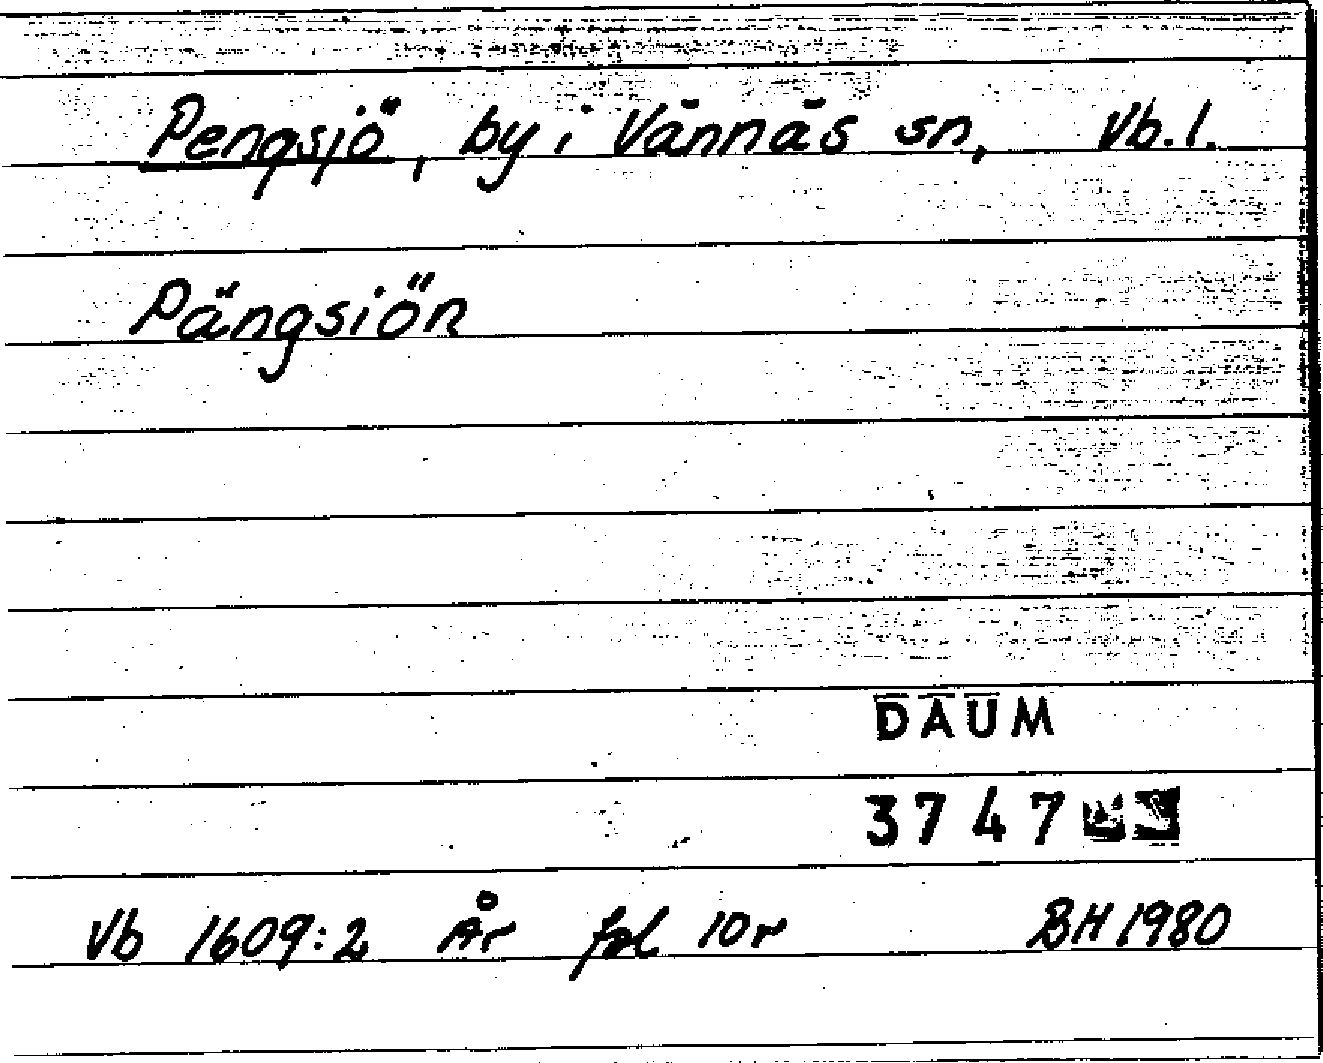 Pengsjö, by i Vännäs sn, Vb. l.
Pängsiön
DAUM
3747
Vb 1609:2 År fol 10r BH 1980